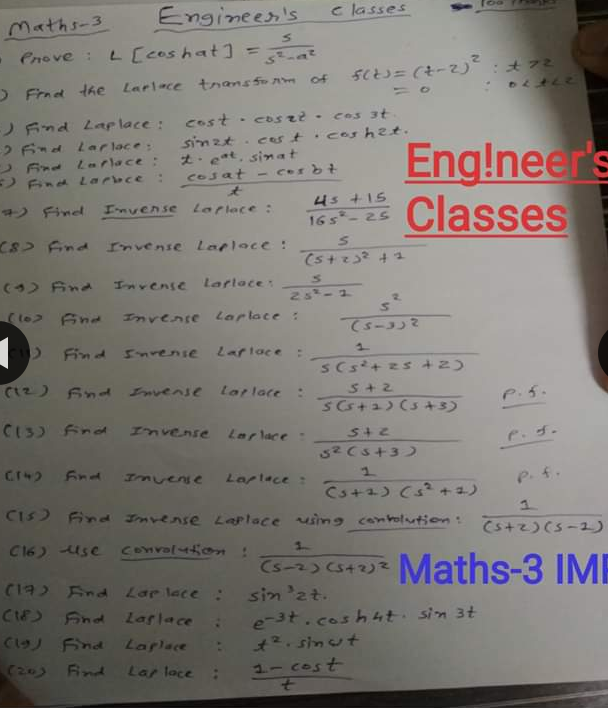 Maths-3 Engineer's classes 100
Prove : L [coshat] = s / s²-a²
) Find the Laplace transform of f(t) = (t-2)² : t>2
= 0 : 0<t<2
) Find Laplace : cost · cos2t · cos 3t.
) Find Laplace : sin2t · cos t · cosh2t.
) Find Laplace : t · e^at · sinat
) Find Laplace : cosat - cosbt / t
Eng!neer's
Classes
7) Find Inverse Laplace : 4s + 15 / 16s² - 25
(8) Find Inverse Laplace : s / (s+2)² + 1
(9) Find Inverse Laplace : s / 2s² - 1
(10) Find Inverse Laplace : s² / (s-3)²
11) Find Inverse Laplace : 1 / s(s² + 2s + 2)
(12) Find Inverse Laplace : s+2 / s(s+1)(s+3) P.f.
(13) Find Inverse Laplace : s+2 / s²(s+3) P.f.
(14) Find Inverse Laplace : 1 / (s+1)(s²+1) P.f.
(15) Find Inverse Laplace using convolution : 1 / (s+2)(s-1)
(16) Use convolution : 1 / (s-2)(s+2)²
Maths-3 IM
(17) Find Laplace : sin³2t.
(18) Find Laplace : e^-3t · cosh4t · sin 3t
(19) Find Laplace : t² · sinωt
(20) Find Laplace : 1 - cost / t